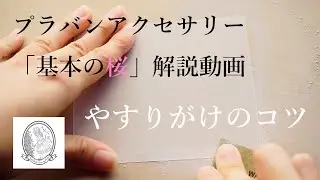 プラバンアクセサリー
「基本の桜」解説動画
やすりがけのコツ